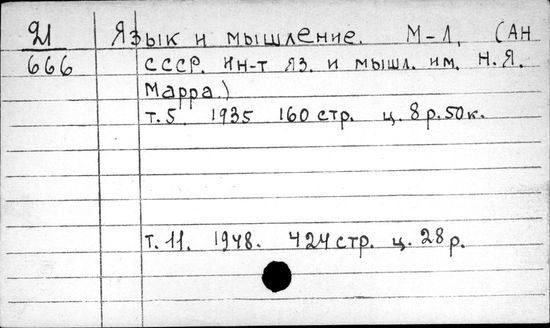 Язык и мышление. М-Л, (Ан
666 СССР. ин-т яз. и мышл. им. Н.Я.
Марра.)
т.5. 1935 160 стр. ц. 8 р. 50 к.
т. 11. 1948. 424 стр. ц. 28 р.